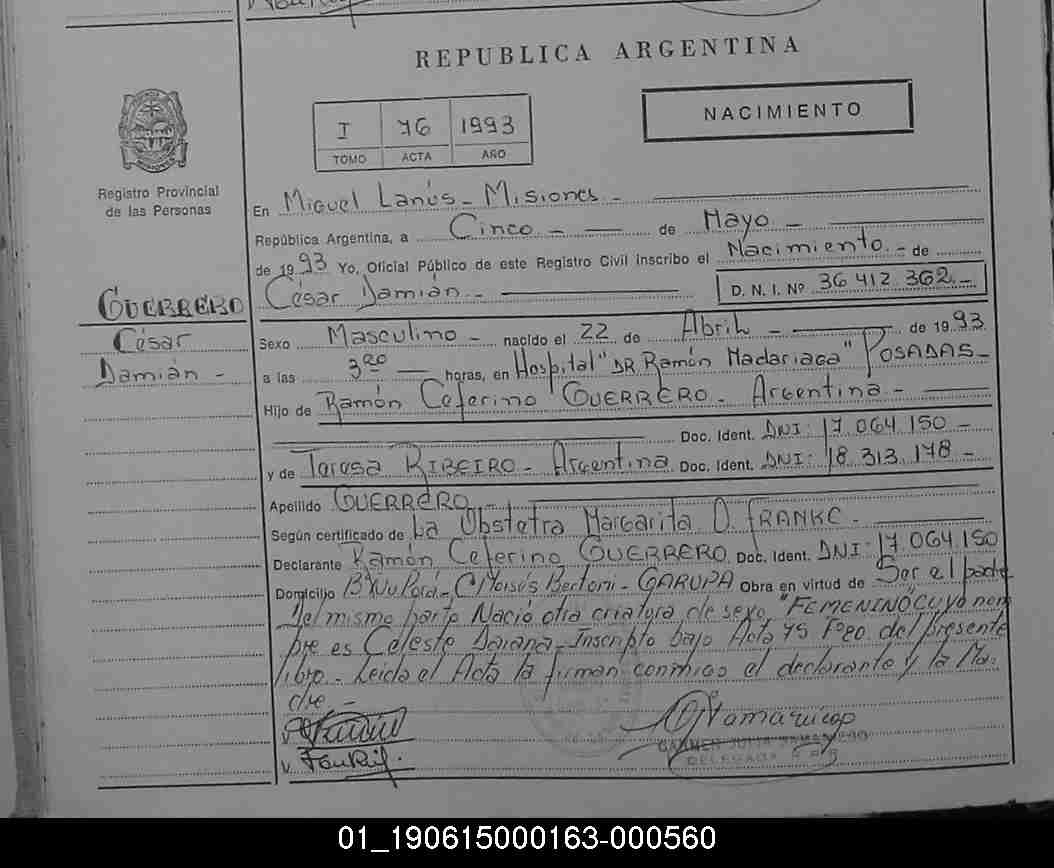 REPUBLICA ARGENTINA
I 76 1993
TOMO ACTA AÑO
NACIMIENTO
Registro Provincial
de las Personas
En Miguel Lanús - Misiones -
República Argentina, a Cinco - de Mayo -
de 1993 Yo, Oficial Público de este Registro Civil inscribo el Nacimiento - de
César Damián - D. N. I. Nº 36 412 362 -
GUERRERO
César
Damián -
Sexo Masculino - nacido el 22 de Abril - de 1993
a las 3 00 horas, en Hospital "DR Ramón Madariaga" POSADAS -
Hijo de Ramón Ceferino GUERRERO - Argentina -
Doc. Ident. DNI: 17 064 150 -
y de Teresa RIBEIRO - Argentina Doc. Ident. DNI: 18 313 178 -
Apellido GUERRERO -
Según certificado de La Obstetra Margarita D. FRANKE -
Declarante Ramón Ceferino GUERRERO Doc. Ident. DNI: 17 064 150
Domicilio Bº Ñu Porá - C/ Moisés Bertoni - GARUPA Obra en virtud de Ser el padre
del mismo parto Nació otra criatura de sexo "FEMENINO" cuyo nom
bre es Celeste Daiana - Inscripto bajo Acta 75 Fº 80 del presente
libro - Leida el Acta la firman conmigo el declarante y la Ma-
dre -
DELEGADA
01_190615000163-000560